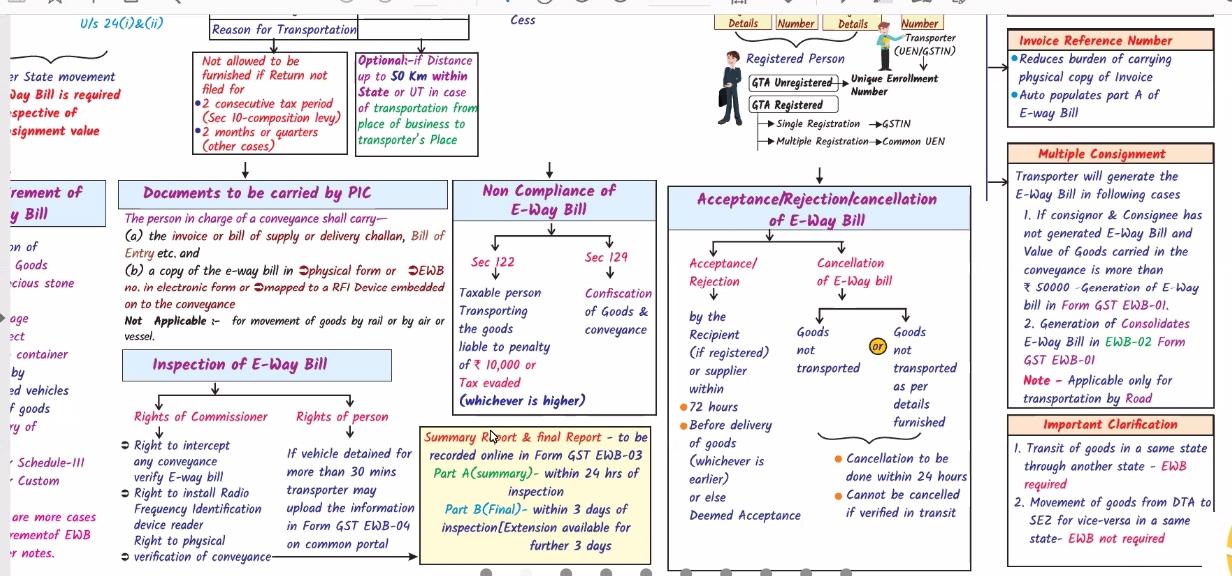 U/s 24(i)&(ii)
er State movement
Way Bill is required
espective of
signment value
rement of
y Bill
on of
Goods
cious stone
age
ect
container
by
ed vehicles
f goods
ry of
r Schedule-III
r Custom
are more cases
rementof EWB
er notes.
Reason for Transportation
Not allowed to be
furnished if Return not
filed for
2 consecutive tax period
(Sec 10-composition levy)
2 months or quarters
(other cases)
Optional:-if Distance
up to 50 Km within
State or UT in case
of transportation from
place of business to
transporter's Place
Cess
Documents to be carried by PIC
The person in charge of a conveyance shall carry—
(a) the invoice or bill of supply or delivery challan, Bill of
Entry etc. and
(b) a copy of the e-way bill in ➲physical form or ➲EWB
no. in electronic form or ➲mapped to a RFI Device embedded
on to the conveyance
Not Applicable :- for movement of goods by rail or by air or
vessel.
Inspection of E-Way Bill
Rights of Commissioner
➲ Right to intercept
any conveyance
verify E-way bill
➲ Right to install Radio
Frequency Identification
device reader
Right to physical
➲ verification of conveyance
Rights of person
If vehicle detained for
more than 30 mins
transporter may
upload the information
in Form GST EWB-04
on common portal
Non Compliance of
E-Way Bill
Sec 122
Taxable person
Transporting
the goods
liable to penalty
of ₹ 10,000 or
Tax evaded
(whichever is higher)
Sec 129
Confiscation
of Goods &
conveyance
Summary Report & final Report - to be
recorded online in Form GST EWB-03
Part A(summary)- within 24 hrs of
inspection
Part B(Final)- within 3 days of
inspection[Extension available for
further 3 days
Details
Number
Details
Number
Transporter
(UEN/GSTIN)
Registered Person
GTA Unregistered
Unique Enrollment
Number
GTA Registered
Single Registration
GSTIN
Multiple Registration
Common UEN
Acceptance/Rejection/cancellation
of E-Way Bill
Acceptance/
Rejection
by the
Recipient
(if registered)
or supplier
within
72 hours
Before delivery
of goods
(whichever is
earlier)
or else
Deemed Acceptance
Cancellation
of E-Way bill
Goods
not
transported
or
Goods
not
transported
as per
details
furnished
Cancellation to be
done within 24 hours
Cannot be cancelled
if verified in transit
Invoice Reference Number
Reduces burden of carrying
physical copy of Invoice
Auto populates part A of
E-way Bill
Multiple Consignment
Transporter will generate the
E-Way Bill in following cases
1. If consignor & Consignee has
not generated E-Way Bill and
Value of Goods carried in the
conveyance is more than
₹ 50000 -Generation of E-Way
bill in Form GST EWB-01.
2. Generation of Consolidates
E-Way Bill in EWB-02 Form
GST EWB-01
Note - Applicable only for
transportation by Road
Important Clarification
1. Transit of goods in a same state
through another state - EWB
required
2. Movement of goods from DTA to
SEZ for vice-versa in a same
state- EWB not required